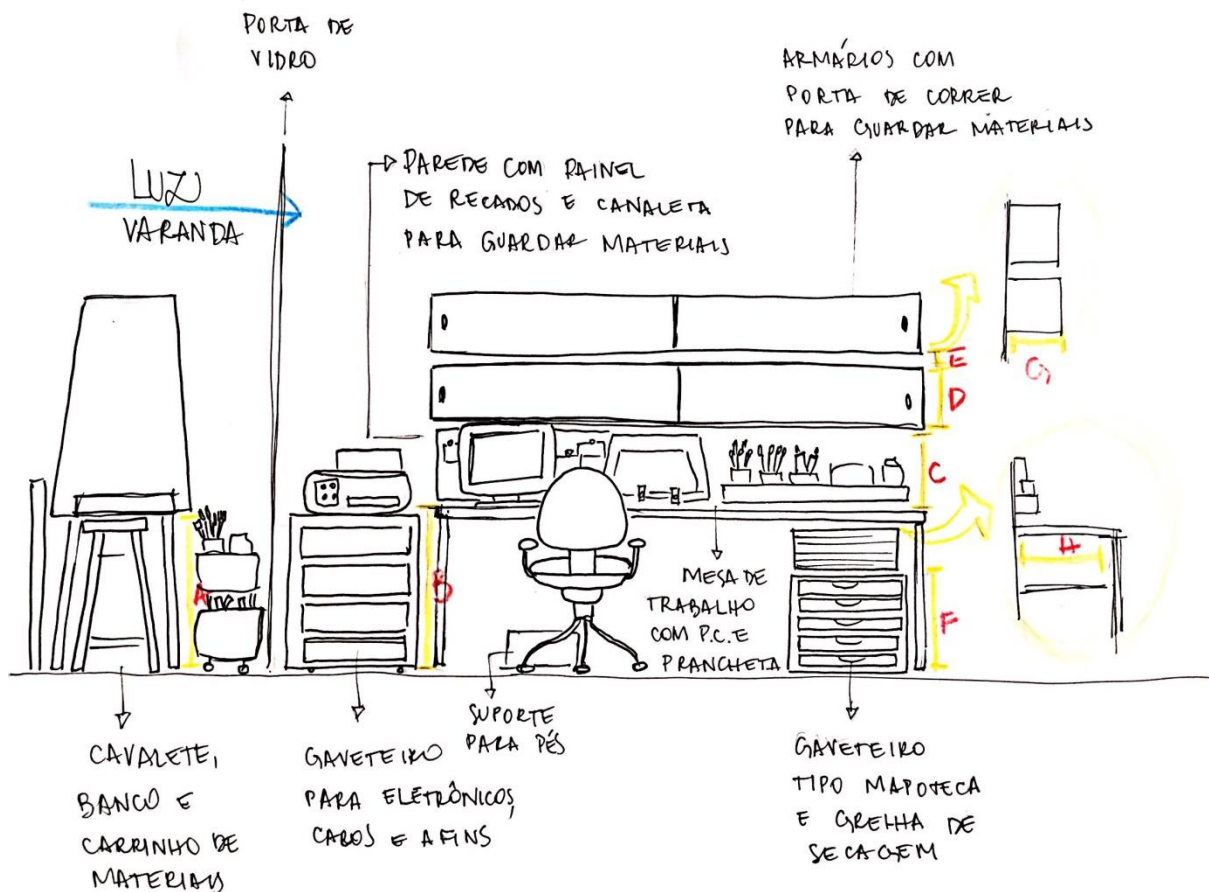 PORTA DE
VIDRO
ARMÁRIOS COM
PORTA DE CORRER
PARA GUARDAR MATERIAIS
LUZ
VARANDA
PAREDE COM PAINEL
DE RECADOS E CANALETA
PARA GUARDAR MATERIAIS
E
D
G
C
A
B
F
H
MESA DE
TRABALHO
COM P.C. E
PRANCHETA
CAVALETE,
BANCO E
CARRINHO DE
MATERIAIS
GAVETEIRO
PARA ELETRÔNICOS,
CABOS E AFINS
SUPORTE
PARA PÉS
GAVETEIRO
TIPO MAPOTECA
E GRELHA DE
SECAGEM